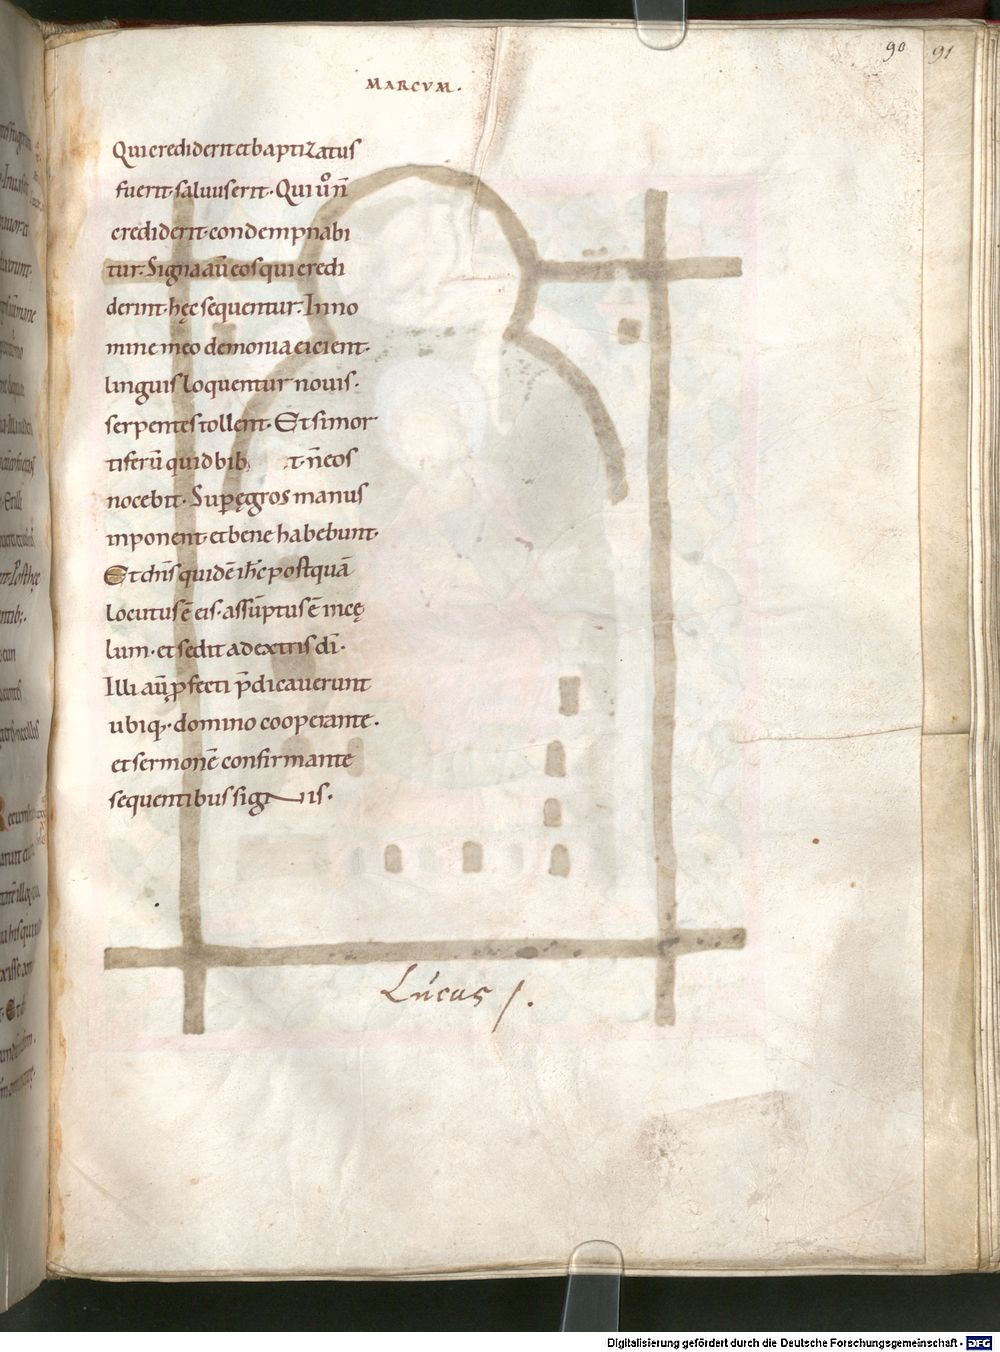 90 91
MARCVM.
Qui crediderit et baptizatus
fuerit· saluus erit· Qui ů n̄
crediderit· condempnabi
tur: Signa aū eos qui credi
derint· hęc sequentur: In no
mine meo demonia eicient·
linguis loquentur nouis·
serpentes tollent· Et si mor
tiferū quid bib t· n̄ eos
nocebit· Sup ęgros manus
inponent· et bene habebunt·
Et dn̄s quidē ih̄c postquā
locutus ē eis· assūptus ē in cę
lum· et sedit a dextris dī·
Illi aū p̱fecti p̄dicauerunt
ubiq;· domino cooperante·
et sermonē confirmante
sequentibus signis·
Lucas /.
Digitalisierung gefördert durch die Deutsche Forschungsgemeinschaft - DFG